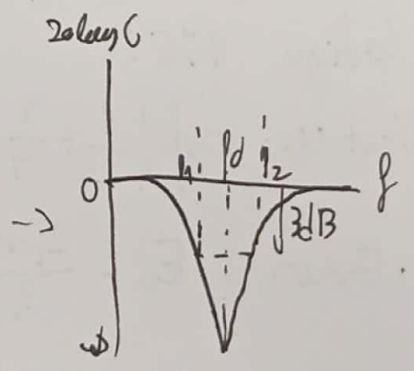 20log G
f1 fd f2
f
0
3dB
-∞